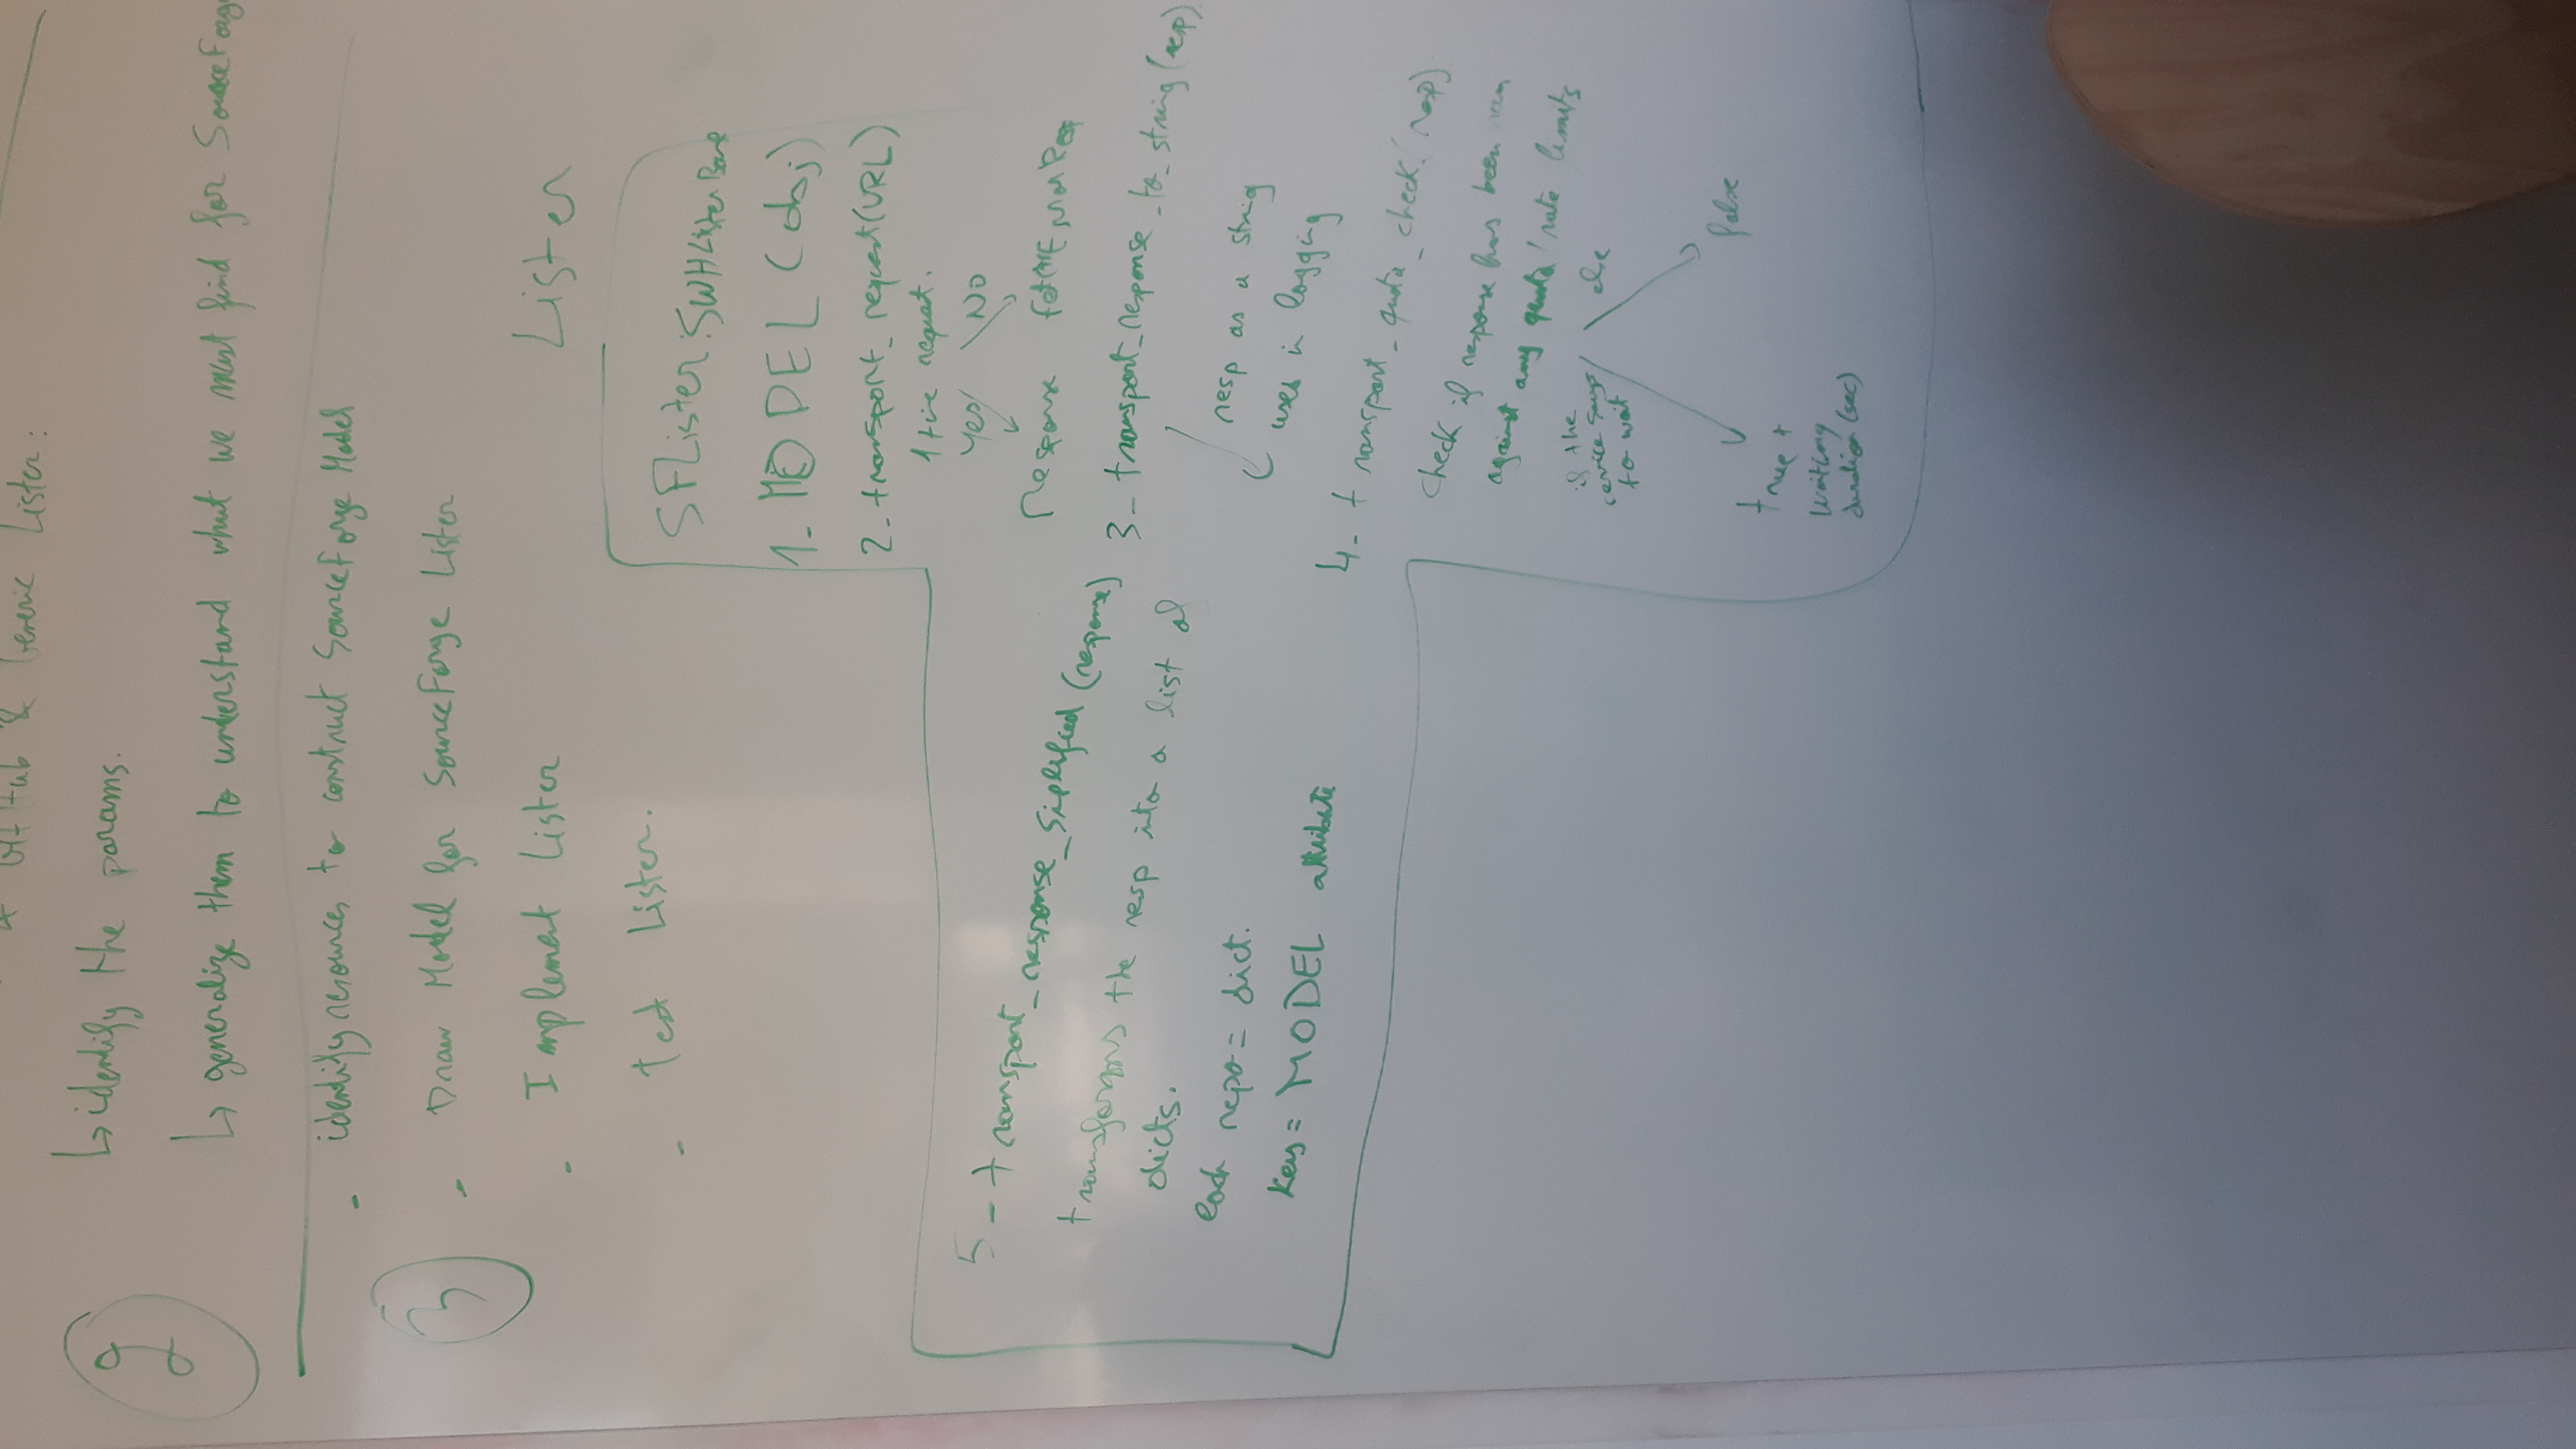 * GitHub & Generic Lister:
2
↳ identify the params.
↳ generalize them to understand what we must find for SourceForg
3
- identify resources to construct SourceForge Model
- Draw Model for SourceForge Lister
- Implement Lister
- Test Lister.
Lister
SFLister: SWHListerBase
1- MODEL (obj)
2- transport_request(URL)
1 time request.
Yes No
Response FetchErrorResp
3- transport_response_to_string(resp)
resp as a string
uses in logging
4- transport_quota_check(resp)
check if response has been run
against any quota/rate limits
if the
service says
to wait
else
true +
waiting
duration (sec)
false
5- transport_response_siplified (response)
transforms the resp into a list of
dicts.
each repo = dict.
key = MODEL attribute